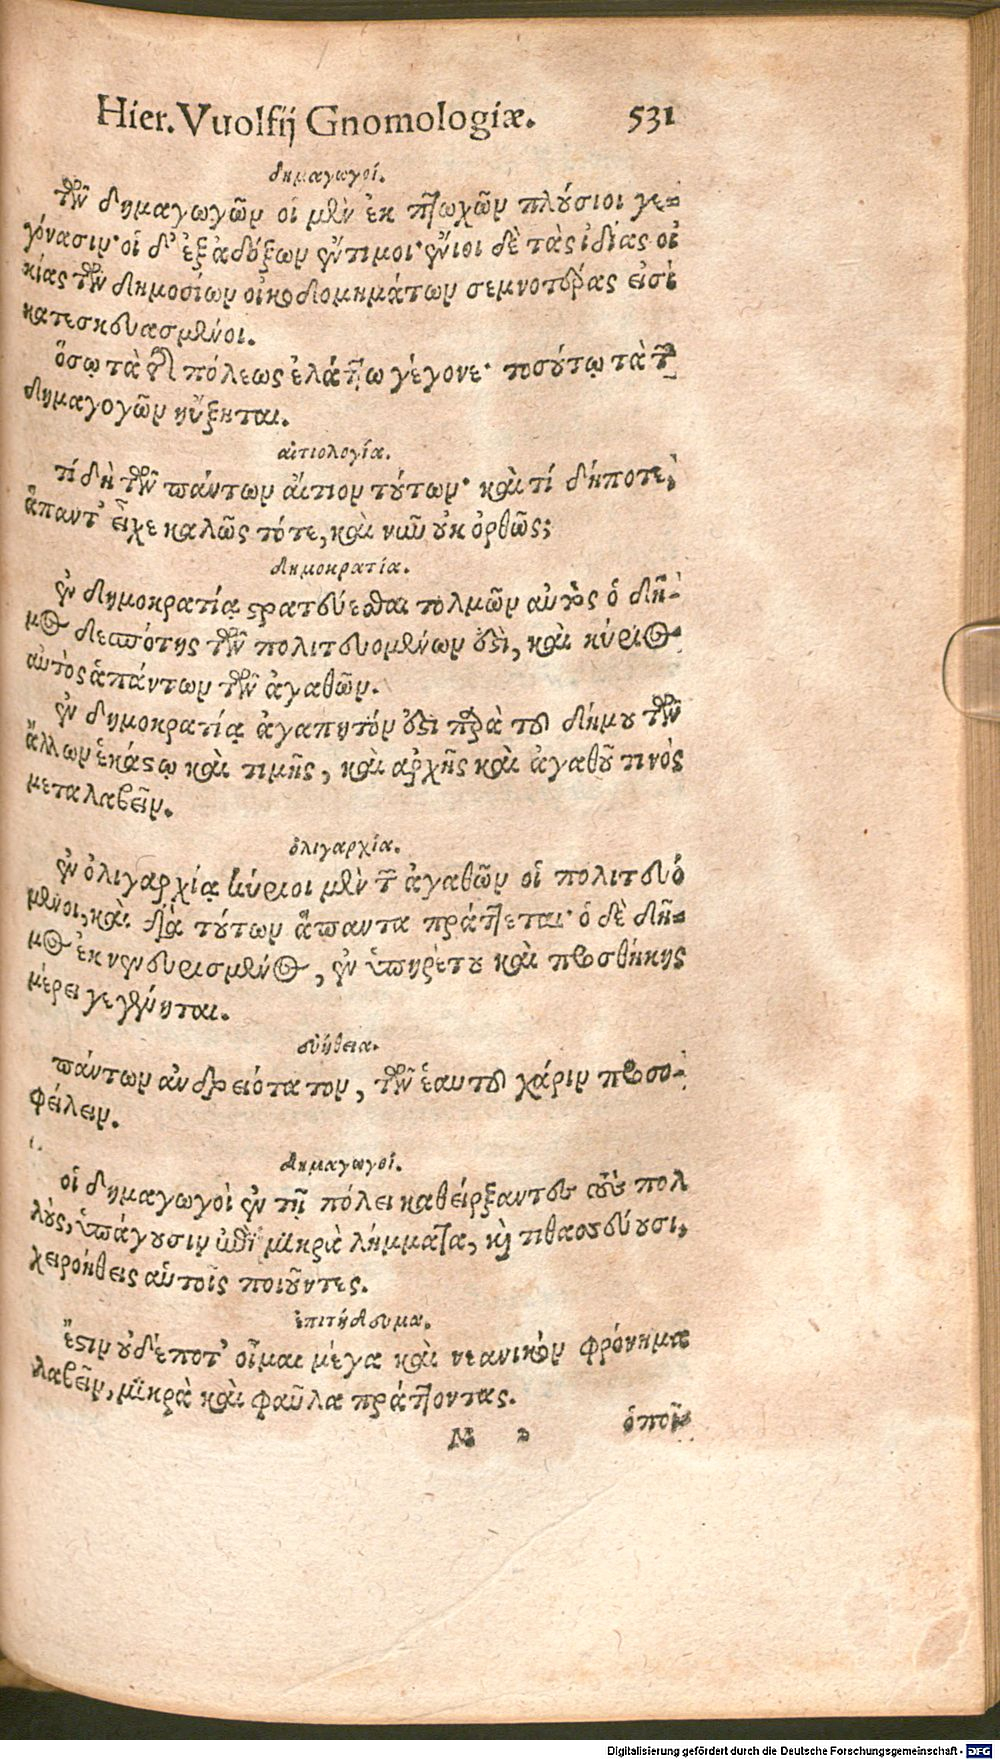 Hier. Vuolfij Gnomologiæ. 531
δημαγωγοί.
τῶν δημαγωγῶν οἱ μὲν ἐκ πτωχῶν πλούσιοι γε-
γόνασιν· οἱ δ' ἐξ ἀδόξων ἔντιμοι· ἔνιοι δὲ τὰς ἰδίας οἰ
κίας τῶν δημοσίων οἰκοδομημάτων σεμνοτέρας εἰσὶ
κατεσκευασμένοι.
ὅσῳ τὰ τῆς πόλεως ἐλάττω γέγονε· τοσούτῳ τὰ τῶν
δημαγογῶν ηὔξηται.
αἰτιολογία.
τί δὴ τῶν πάντων αἴτιον τούτων· καὶ τί δήποτε,
ἅπαντ' εἶχε καλῶς τότε, καὶ νῦν οὐκ ὀρθῶς;
δημοκρατία.
ἐν δημοκρατίᾳ στρατεύεσθαι τολμῶν αὐτὸς ὁ δῆ-
μος δεσπότης τῶν πολιτευομένων ἐστὶ, καὶ κύριος
αὐτὸς ἁπάντων τῶν ἀγαθῶν.
ἐν δημοκρατίᾳ ἀγαπητόν ἐστι παρὰ τοῦ δήμου τῶν
ἄλλων ἑκάστῳ καὶ τιμῆς, καὶ ἀρχῆς καὶ ἀγαθοῦ τινός
μεταλαβεῖν.
ὀλιγαρχία.
ἐν ὀλιγαρχίᾳ κύριοι μὲν τῶν ἀγαθῶν οἱ πολιτευό
μενοι, καὶ διὰ τούτων ἅπαντα πράττεται· ὁ δὲ δῆ-
μος ἐκνενευρισμένος, ἐν ὑπηρέτου καὶ προσθήκης
μέρει γεγένηται.
συνήθεια.
πάντων ἀνδρειότατον, τῶν ἑαυτοῦ χάριν προσο-
φείλειν.
δημαγωγοί.
οἱ δημαγωγοὶ ἐν τῇ πόλει καθείρξαντες τοὺς πολ
λοὺς, ὑπάγουσιν ἐπὶ μικρὰ λήμματα, καὶ τιθασσεύουσι,
χειροήθεις αὑτοῖς ποιοῦντες.
ἐπιτήδευμα.
ἔστιν οὐδέποτ' οἶμαι μέγα καὶ νεανικὸν φρόνημα
λαβεῖν, μικρὰ καὶ φαῦλα πράττοντας.
N 2 ὁποῖ
Digitalisierung gefördert durch die Deutsche Forschungsgemeinschaft - DFG